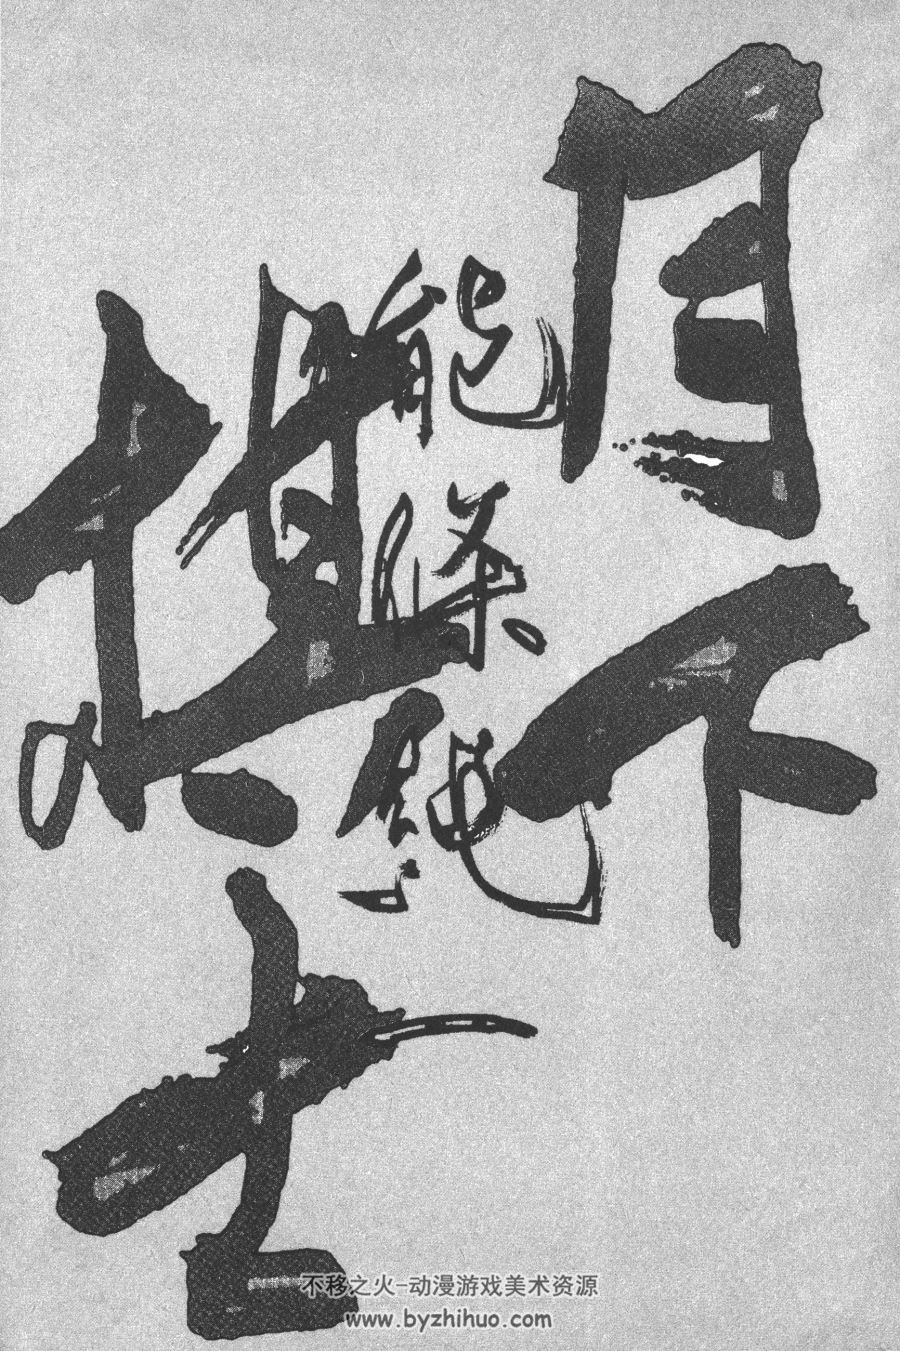 月下
能條純一
棋士
不移之火-动漫游戏美术资源
www.byzhihuo.com